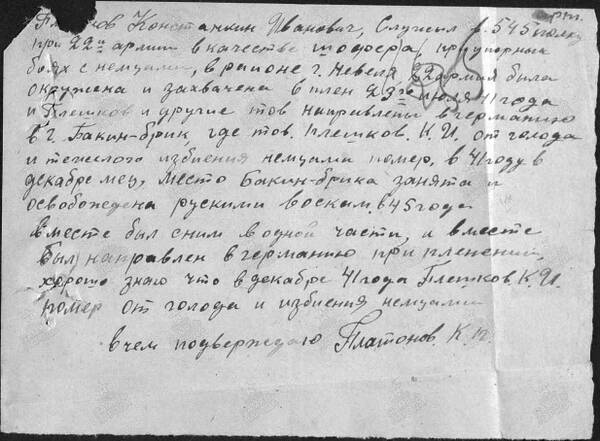 орт.
Плешков Константин Иванович, Служил в 545 полку
при 22й армии в качестве шофера, при упорных
боях с немцами, в районе г. Невеля, 22 армия была
окружена и захвачена в плен 23го июля 41 года
и Плешков и другие тов направлены в германию
в г. Бакин-брик где тов. Плешков. К. И. от голода
и тяжелого избиения немцами помер, в 41 году в
декабре мец, место Бакин-брика занята и
освобождена рускими воскам. в 45 году
вместе был с ним в одной части, и вместе
был направлен в германию при пленении,
хорошо знаю что в декабре 41 года Плешков. К. И.
помер от голода и избиения немцами
в чем подверждаю Платонов К. П.